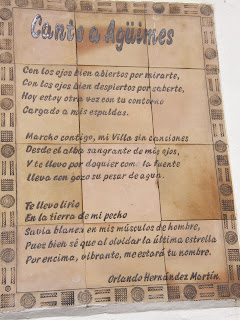 Canto a Agüimes
Con los ojos bien abiertos por mirarte,
Con los ojos bien despiertos por saberte,
Hoy estoy otra vez con tu contorno
Cargado a mis espaldas.
Marcho contigo, mi Villa sin canciones
Desde el alba sangrante de mis ojos,
Y te llevo por doquier com la fuente
lleva con gozo su pesar de agua.
Te llevo lirio
En la tierra de mi pecho
Savia blanca en mis músculos de hombre,
Pues bien sé que al olvidar la última estrella
Por encima, vibrante, me estará tu nombre.
Orlando Hernández Martín